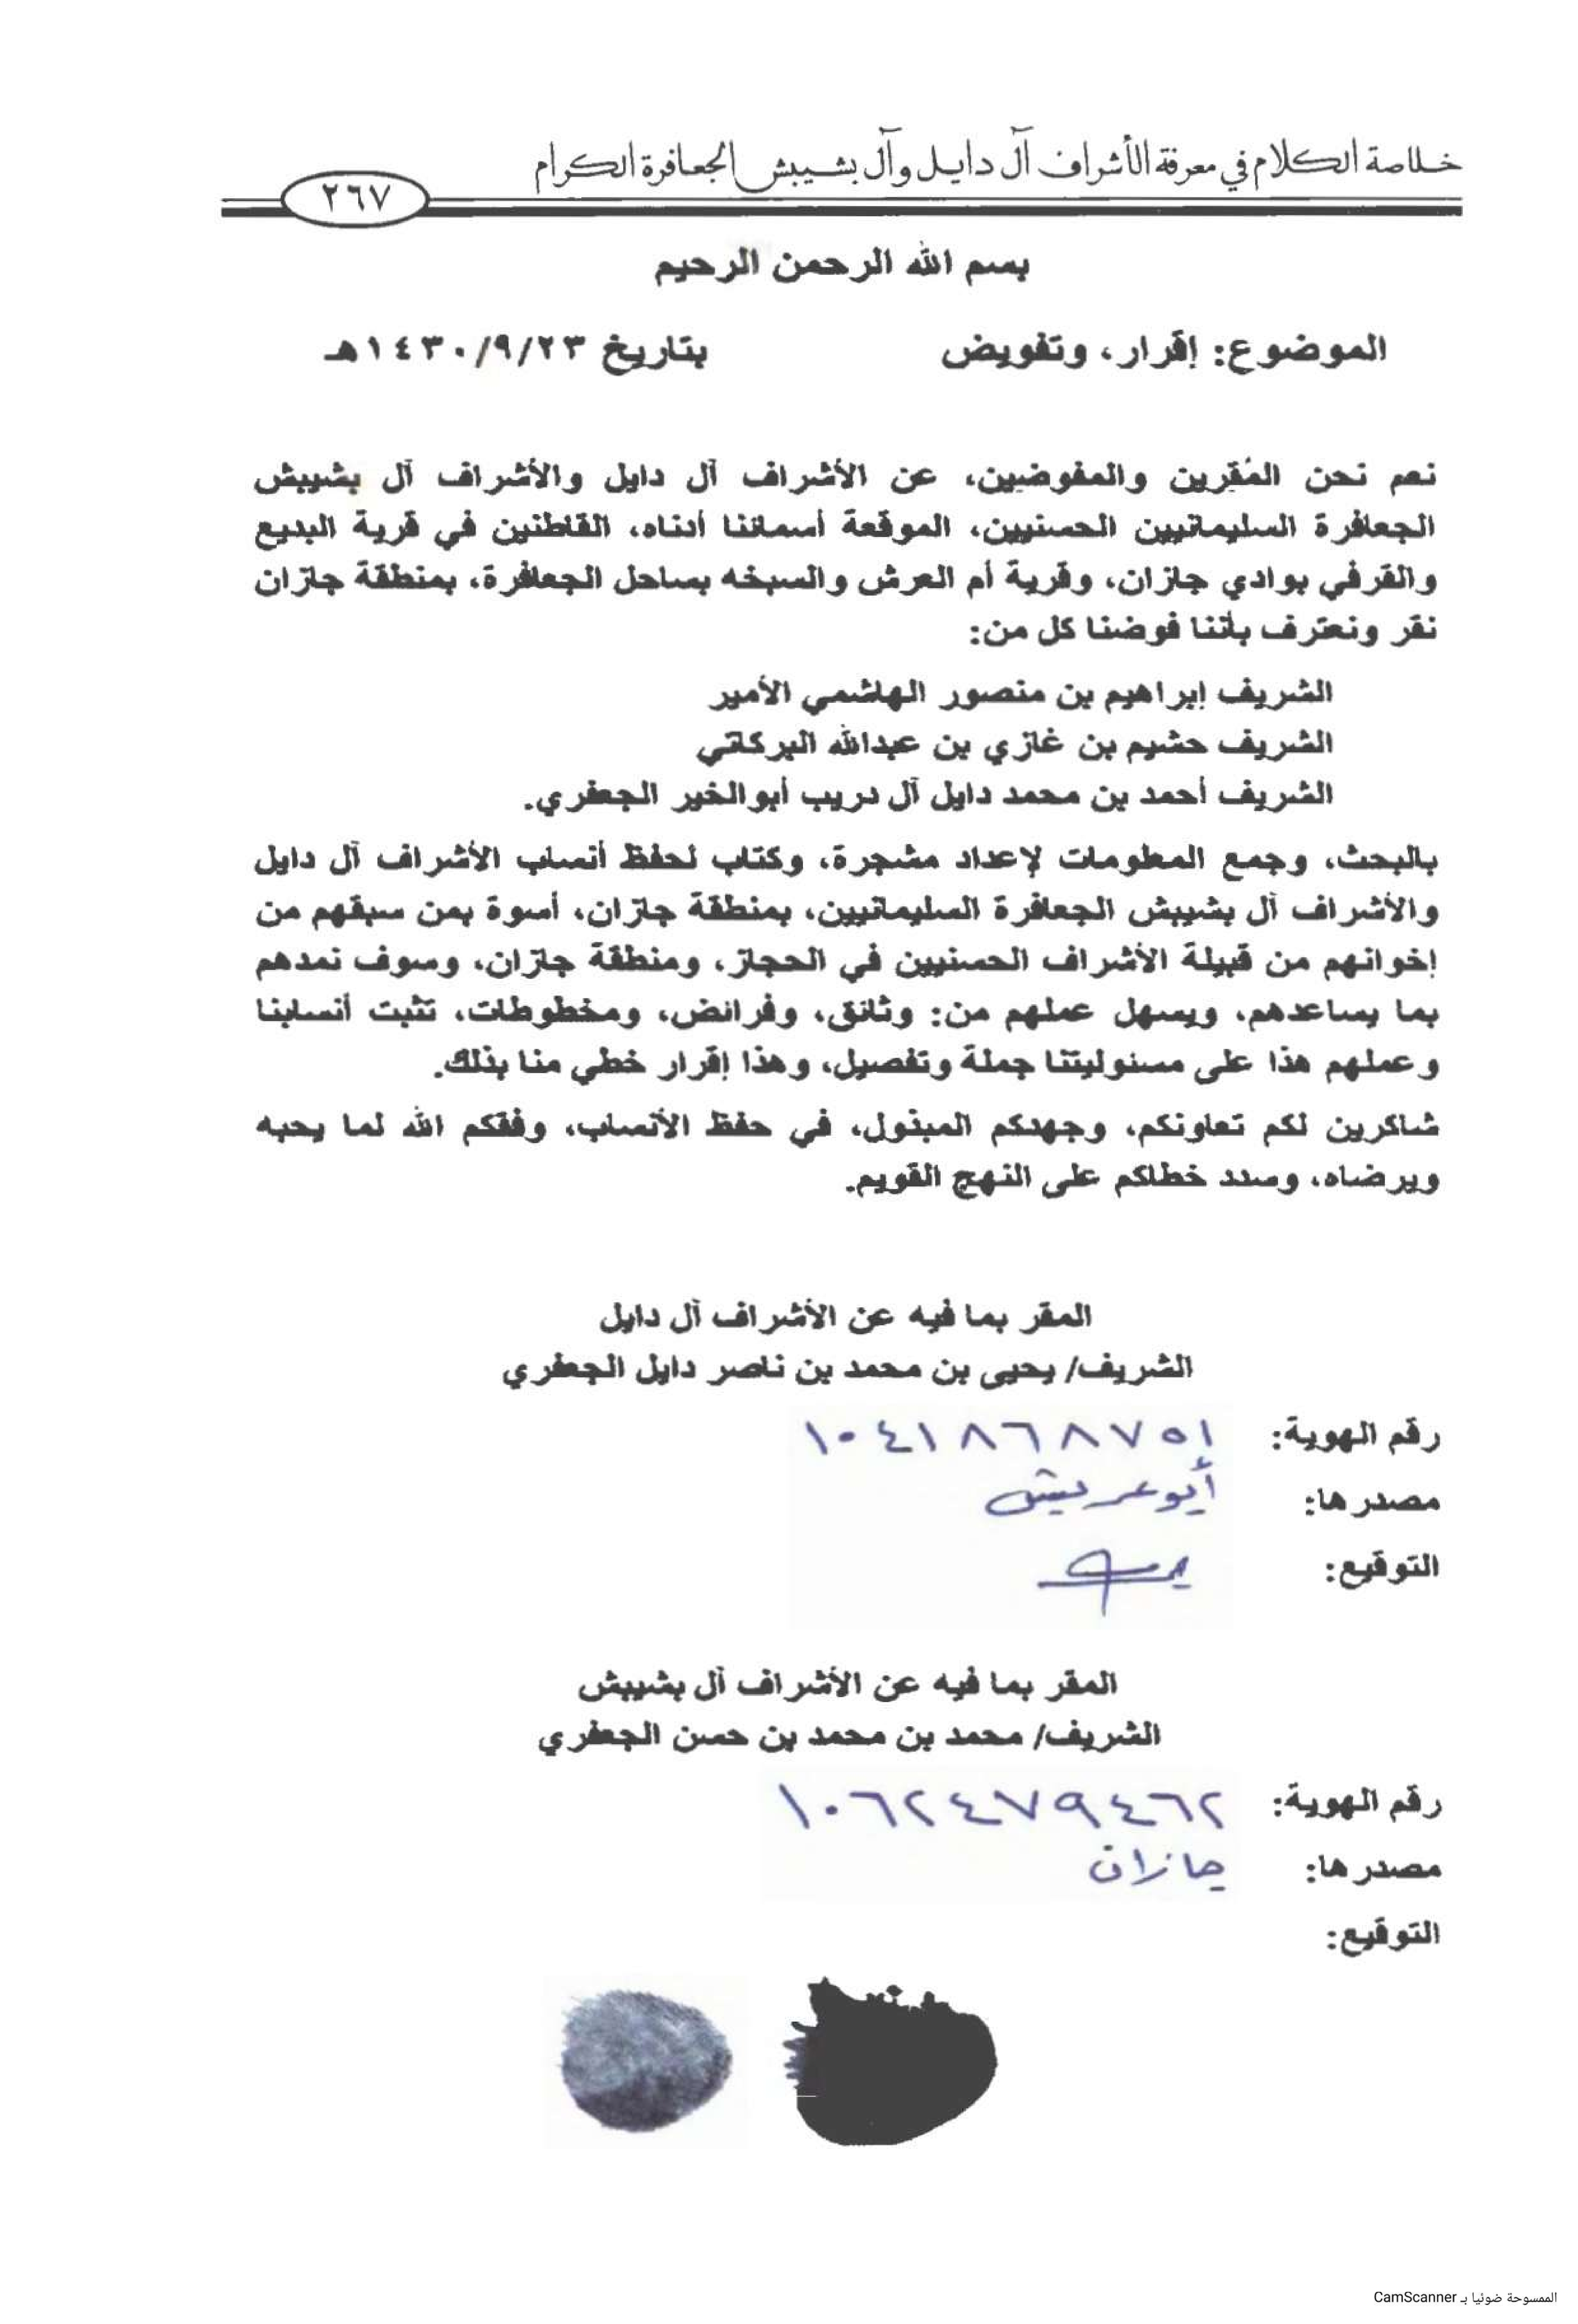 خلاصة الكلام في معرفة الأشراف آل دايل وآل بشيبش الجعافرة الكرام
٢٦٧
بسم الله الرحمن الرحيم
الموضوع: إقرار، وتفويض بتاريخ ١٤٣٠/٩/٢٣هـ
نعم نحن المُقرين والمفوضين، عن الأشراف آل دايل والأشراف آل بشيبش
الجعافرة السليمانيين الحسنيين، الموقعة أسمائنا أدناه، القاطنين في قرية البديع
والقرفي بوادي جازان، وقرية أم العرش والسبخه بساحل الجعافرة، بمنطقة جازان
نقر ونعترف بأننا فوضنا كل من:
الشريف إبراهيم بن منصور الهاشمي الأمير
الشريف حشيم بن غازي بن عبدالله البركاتي
الشريف أحمد بن محمد دايل آل دريب أبوالخير الجعفري.
بالبحث، وجمع المعلومات لإعداد مشجرة، وكتاب لحفظ أنساب الأشراف آل دايل
والأشراف آل بشيبش الجعافرة السليمانيين، بمنطقة جازان، أسوة بمن سبقهم من
إخوانهم من قبيلة الأشراف الحسنيين في الحجاز، ومنطقة جازان، وسوف نمدهم
بما يساعدهم، ويسهل عملهم من: وثائق، وفرائض، ومخطوطات، تثبت أنسابنا
وعملهم هذا على مسئوليتنا جملة وتفصيل، وهذا إقرار خطي منا بذلك.
شاكرين لكم تعاونكم، وجهدكم المبذول، في حفظ الأنساب، وفقكم الله لما يحبه
ويرضاه، وسدد خطاكم على النهج القويم.
المقر بما فيه عن الأشراف آل دايل
الشريف/ يحيى بن محمد بن ناصر دايل الجعفري
رقم الهوية: ١٠٤١٨٦٨٧٥١
مصدرها: أبوعريش
التوقيع:
المقر بما فيه عن الأشراف آل بشيبش
الشريف/ محمد بن محمد بن حسن الجعفري
رقم الهوية: ١٠٦٢٤٧٩٤٦٢
مصدرها: جازان
التوقيع:
الممسوحة ضوئيا بـ CamScanner